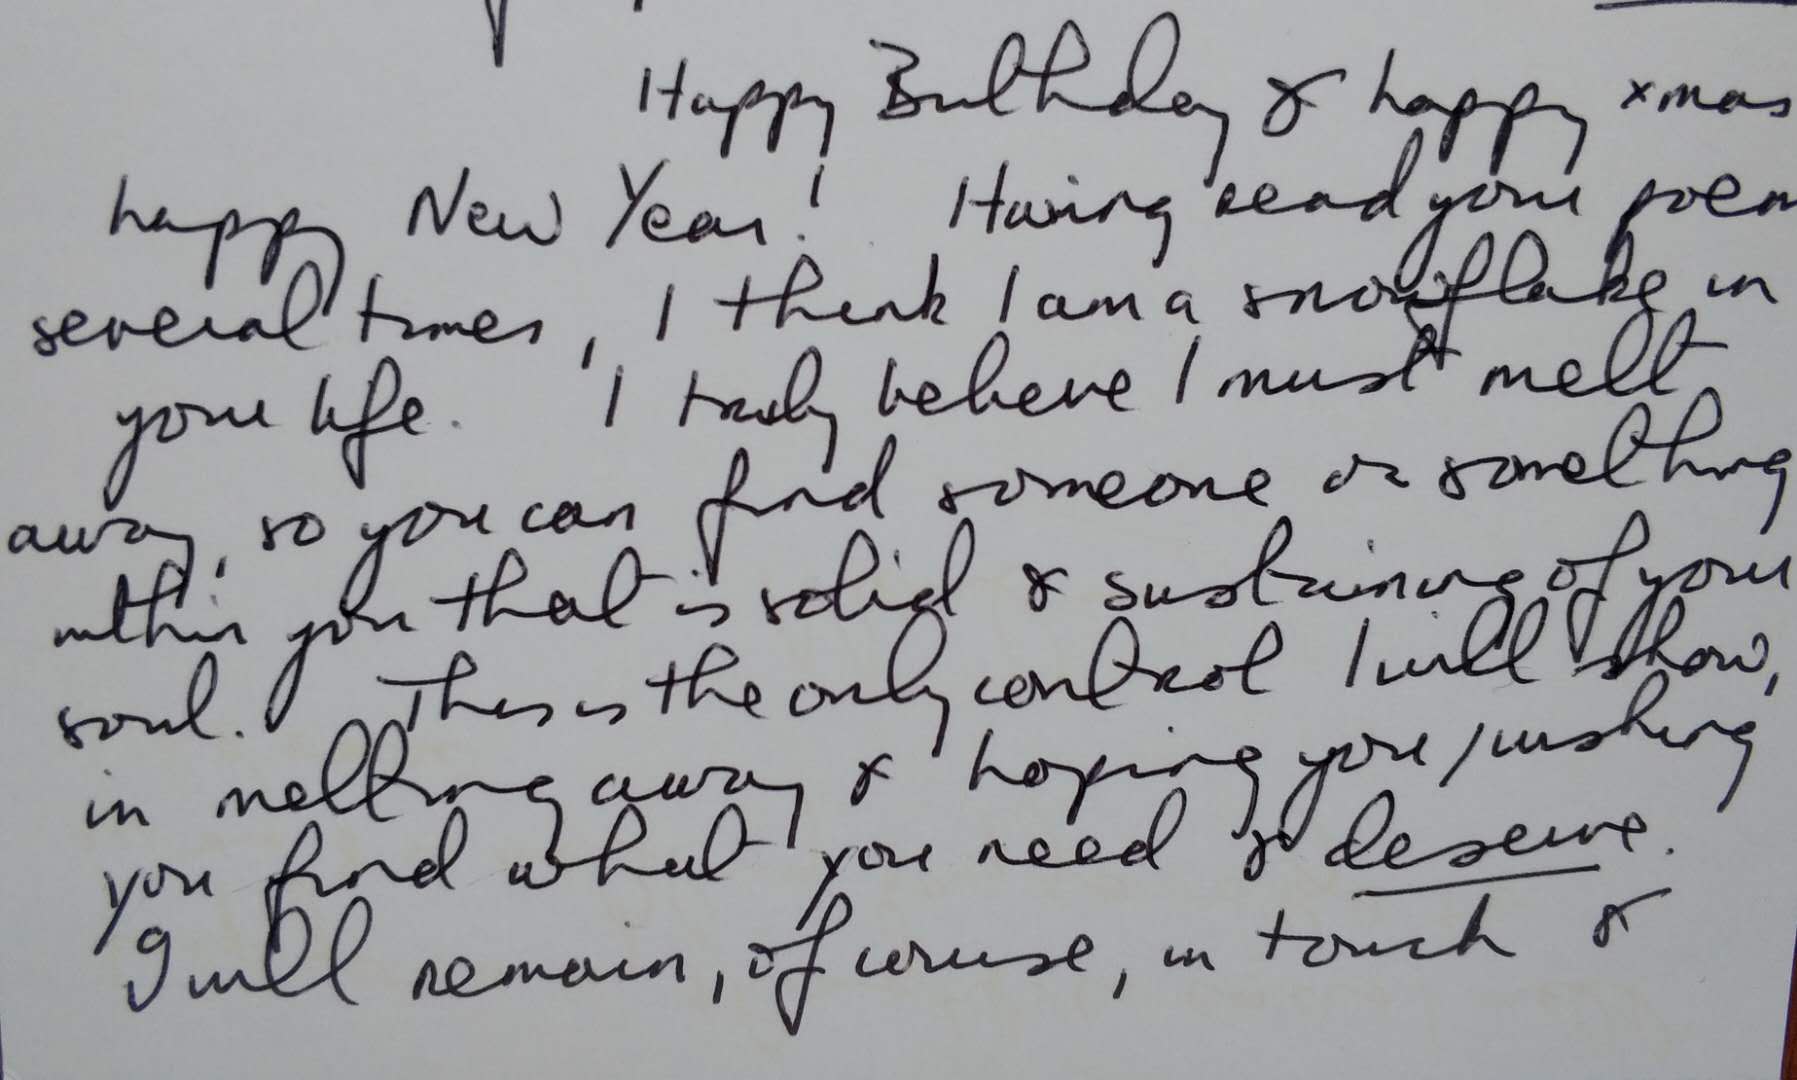 Happy Birthday & happy xmas
happy New Year! Having read your poem
several times, I think I am a snowflake in
your life. I truly believe I must melt
away, so you can find someone or something
within you that is solid & sustaining of your
soul. This is the only control I will show,
in melting away & hoping you/wishing
you find what you need & deserve.
I will remain, of course, in touch &